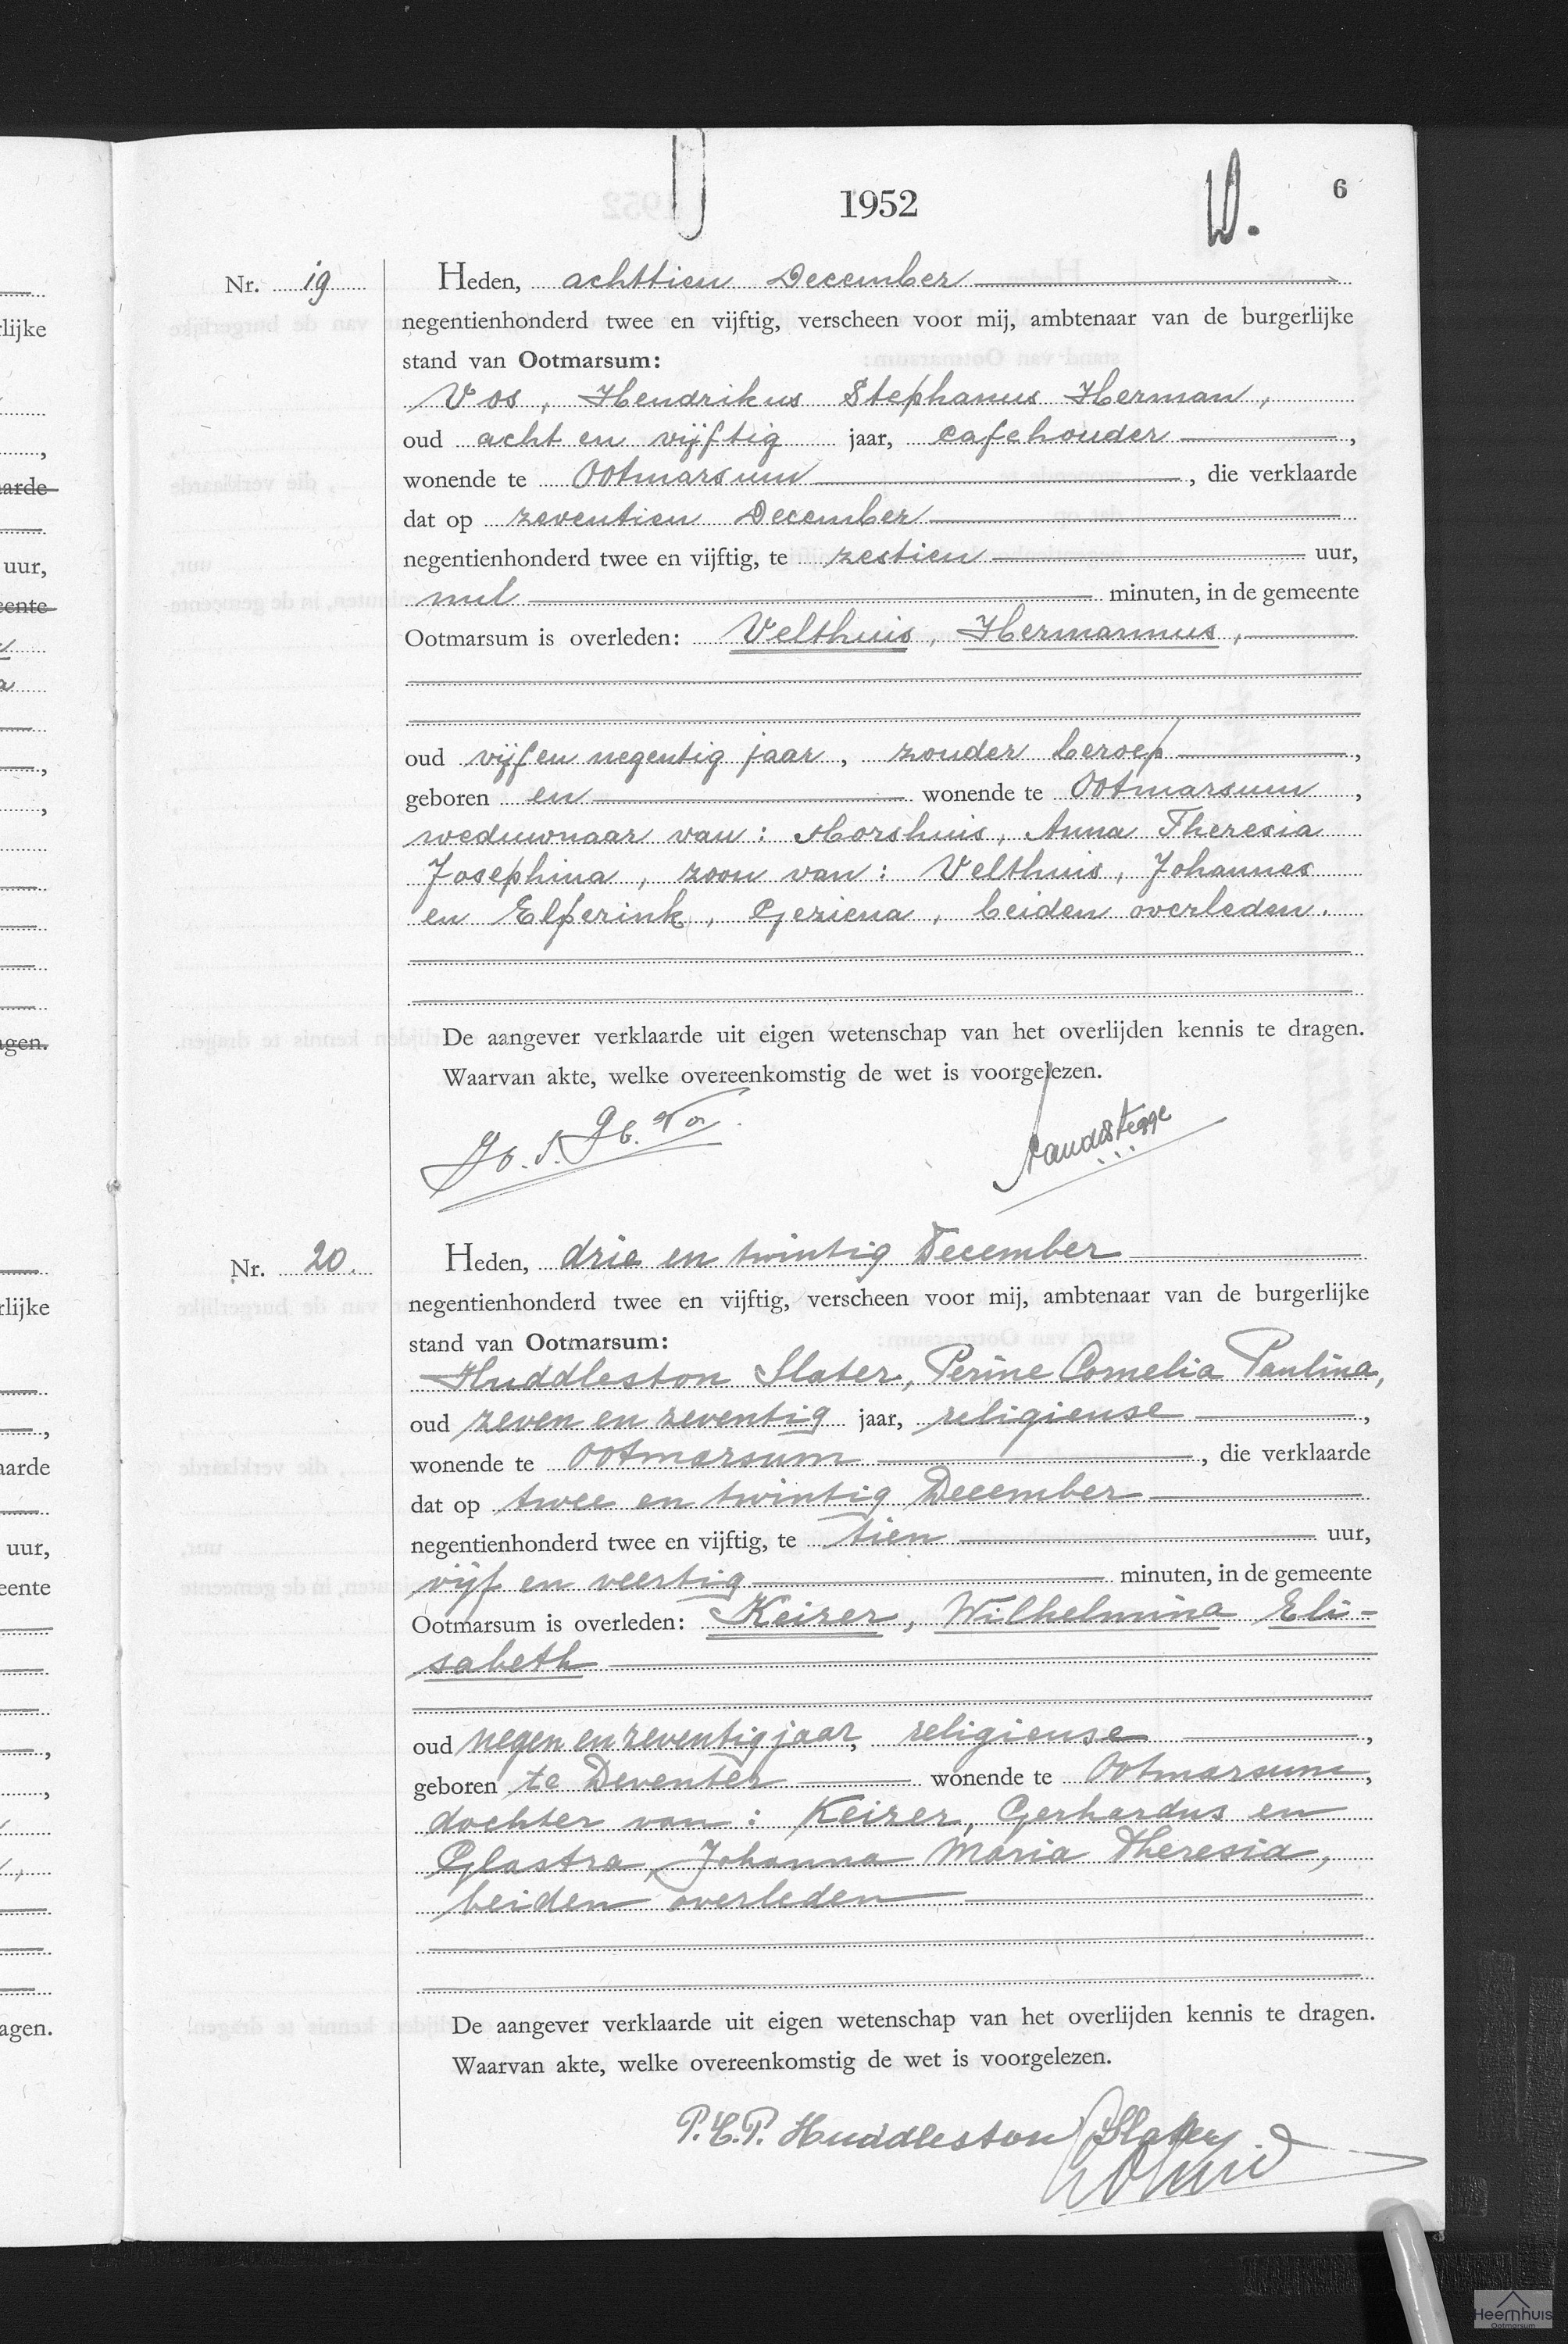 1952
6
D.
Nr. 19
Heden, achttien December
negentienhonderd twee en vijftig, verscheen voor mij, ambtenaar van de burgerlijke
stand van Ootmarsum:
Vos, Hendrikus Stephanus Herman,
oud acht en vijftig jaar, cafehouder ,
wonende te Ootmarsum , die verklaarde
dat op zeventien December
negentienhonderd twee en vijftig, te zestien uur,
nul minuten, in de gemeente
Ootmarsum is overleden: Velthuis, Hermannus,
oud vijf en negentig jaar, zonder beroep ,
geboren en wonende te Ootmarsum ,
weduwnaar van: Morshuis, Anna Theresia
Josephina, zoon van: Velthuis, Johannes
en Elferink, Geziena, beiden overleden.
De aangever verklaarde uit eigen wetenschap van het overlijden kennis te dragen.
Waarvan akte, welke overeenkomstig de wet is voorgelezen.
H. S. H. Vos
Nr. 20.
Heden, drie en twintig December
negentienhonderd twee en vijftig, verscheen voor mij, ambtenaar van de burgerlijke
stand van Ootmarsum:
Huddleston Slater, Perine Cornelia Paulina,
oud zeven en zeventig jaar, religieuse ,
wonende te Ootmarsum , die verklaarde
dat op twee en twintig December
negentienhonderd twee en vijftig, te tien uur,
vijf en veertig minuten, in de gemeente
Ootmarsum is overleden: Keizer, Wilhelmina Eli-
sabeth
oud negen en zeventig jaar, religieuse ,
geboren te Deventer wonende te Ootmarsum,
dochter van: Keizer, Gerhardus en
Glastra, Johanna Maria Theresia,
beiden overleden
De aangever verklaarde uit eigen wetenschap van het overlijden kennis te dragen.
Waarvan akte, welke overeenkomstig de wet is voorgelezen.
P.C.P. Huddleston Slater
lijke
arde
uur,
eente
agen.
rlijke
aarde
uur,
eente
agen.
Heemhuis
Ootmarsum